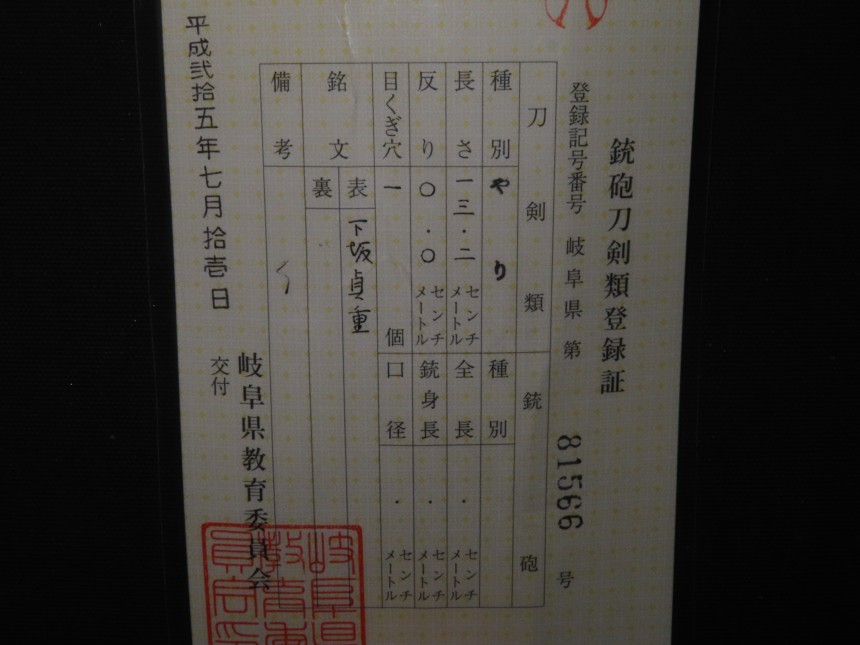 銃砲刀剣類登録証
登録記号番号 岐阜県 第 81566 号
刀剣類 銃砲
種別 やり 種別
長さ 一三・二 センチメートル 全長 ・ センチメートル
反り 〇・〇 センチメートル 銃身長 ・ センチメートル
目くぎ穴 一 個 口径 ・ センチメートル
銘文 表 下坂貞重
裏
備考
岐阜県教育委員会
交付
平成弐拾五年七月拾壱日